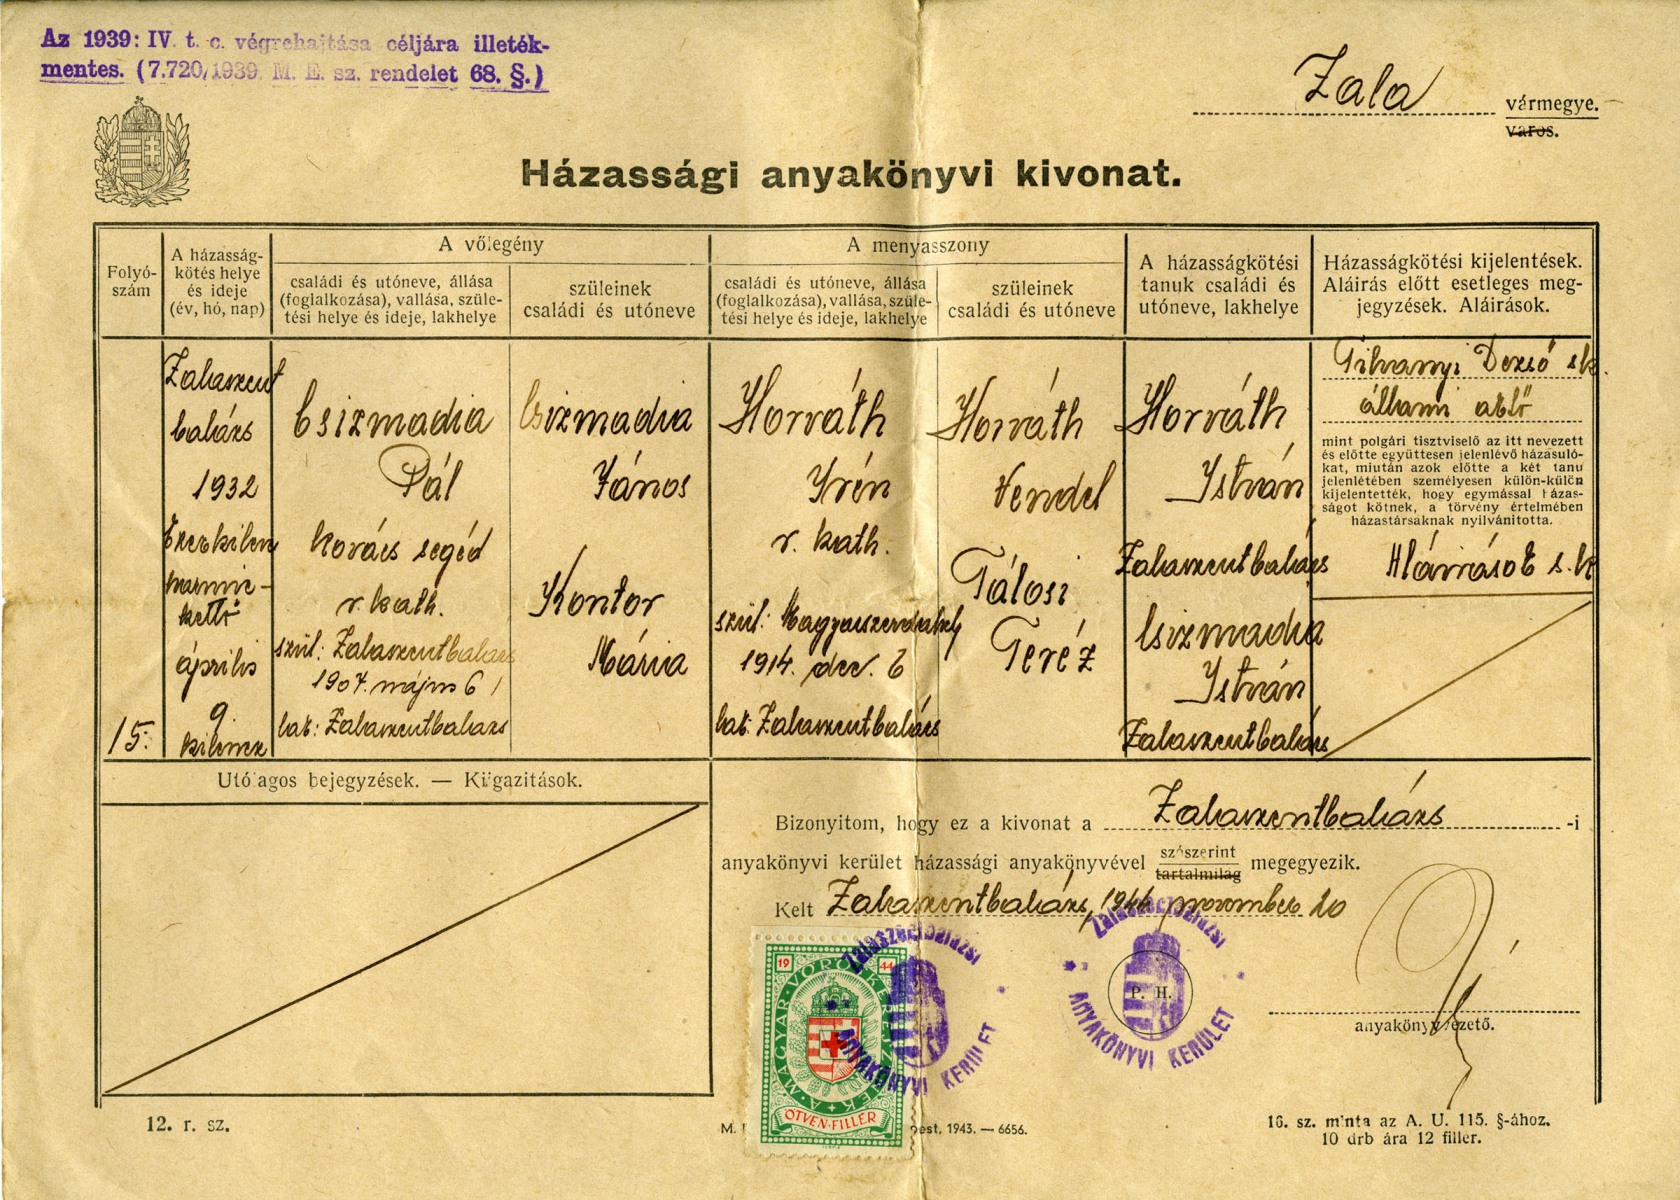 Az 1939: IV. t. c. végrehajtása céljára illeték-
mentes. (7.720/1939. M. E. sz. rendelet 68. §.)
Zala vármegye.
város.
Házassági anyakönyvi kivonat.
Folyó-
szám
A házasság-
kötés helye
és ideje
(év, hó, nap)
A vőlegény
családi és utóneve, állása
(foglalkozása), vallása, szüle-
tési helye és ideje, lakhelye
szüleinek
családi és utóneve
A menyasszony
családi és utóneve, állása
(foglalkozása), vallása, szüle-
tési helye és ideje, lakhelye
szüleinek
családi és utóneve
A házasságkötési
tanuk családi és
utóneve, lakhelye
Házasságkötési kijelentések.
Aláirás előtt esetleges meg-
jegyzések. Aláirások.
15.
Zalaszent
balázs
1932
Ezerkilenc
harminc-
kettő
április
9.
kilenc
Csizmadia
Pál
kovács segéd
r. kath.
szül: Zalaszentbalázs
1907. május 6
lak: Zalaszentbalázs
Csizmadia
János
Kontor
Mária
Horváth
Irén
r. kath.
szül: Magyarszerdahely
1914. dec. 6
lak: Zalaszentbalázs
Horváth
Vendel
Tálosi
Teréz
Horváth
István
Zalaszentbalázs
Csizmadia
István
Zalaszentbalázs
Dezső s.k.
állami
mint polgári tisztviselő az itt nevezett
és előtte együttesen jelenlévő házasuló-
kat, miután azok előtte a két tanu
jelenlétében személyesen külön-külön
kijelentették, hogy egymással házas-
ságot kötnek, a törvény értelmében
házastársaknak nyilvánitotta.
Aláirások s.k.
Utólagos bejegyzések. — Kiigazitások.
Bizonyitom, hogy ez a kivonat a Zalaszentbalázs -i
anyakönyvi kerület házassági anyakönyvével szószerint megegyezik.
tartalmilag
Kelt Zalaszentbalázs, 1944 november 20
19 44
A MAGYAR VÖRÖSKERESZTNEK
ÖTVEN FILLÉR
ANYAKÖNYVI KERÜLET
P. H.
ANYAKÖNYVI KERÜLET
anyakönyvvezető.
12. r. sz.
pest, 1943. — 6656.
16. sz. minta az A. U. 115. §-ához.
10 drb ára 12 fillér.